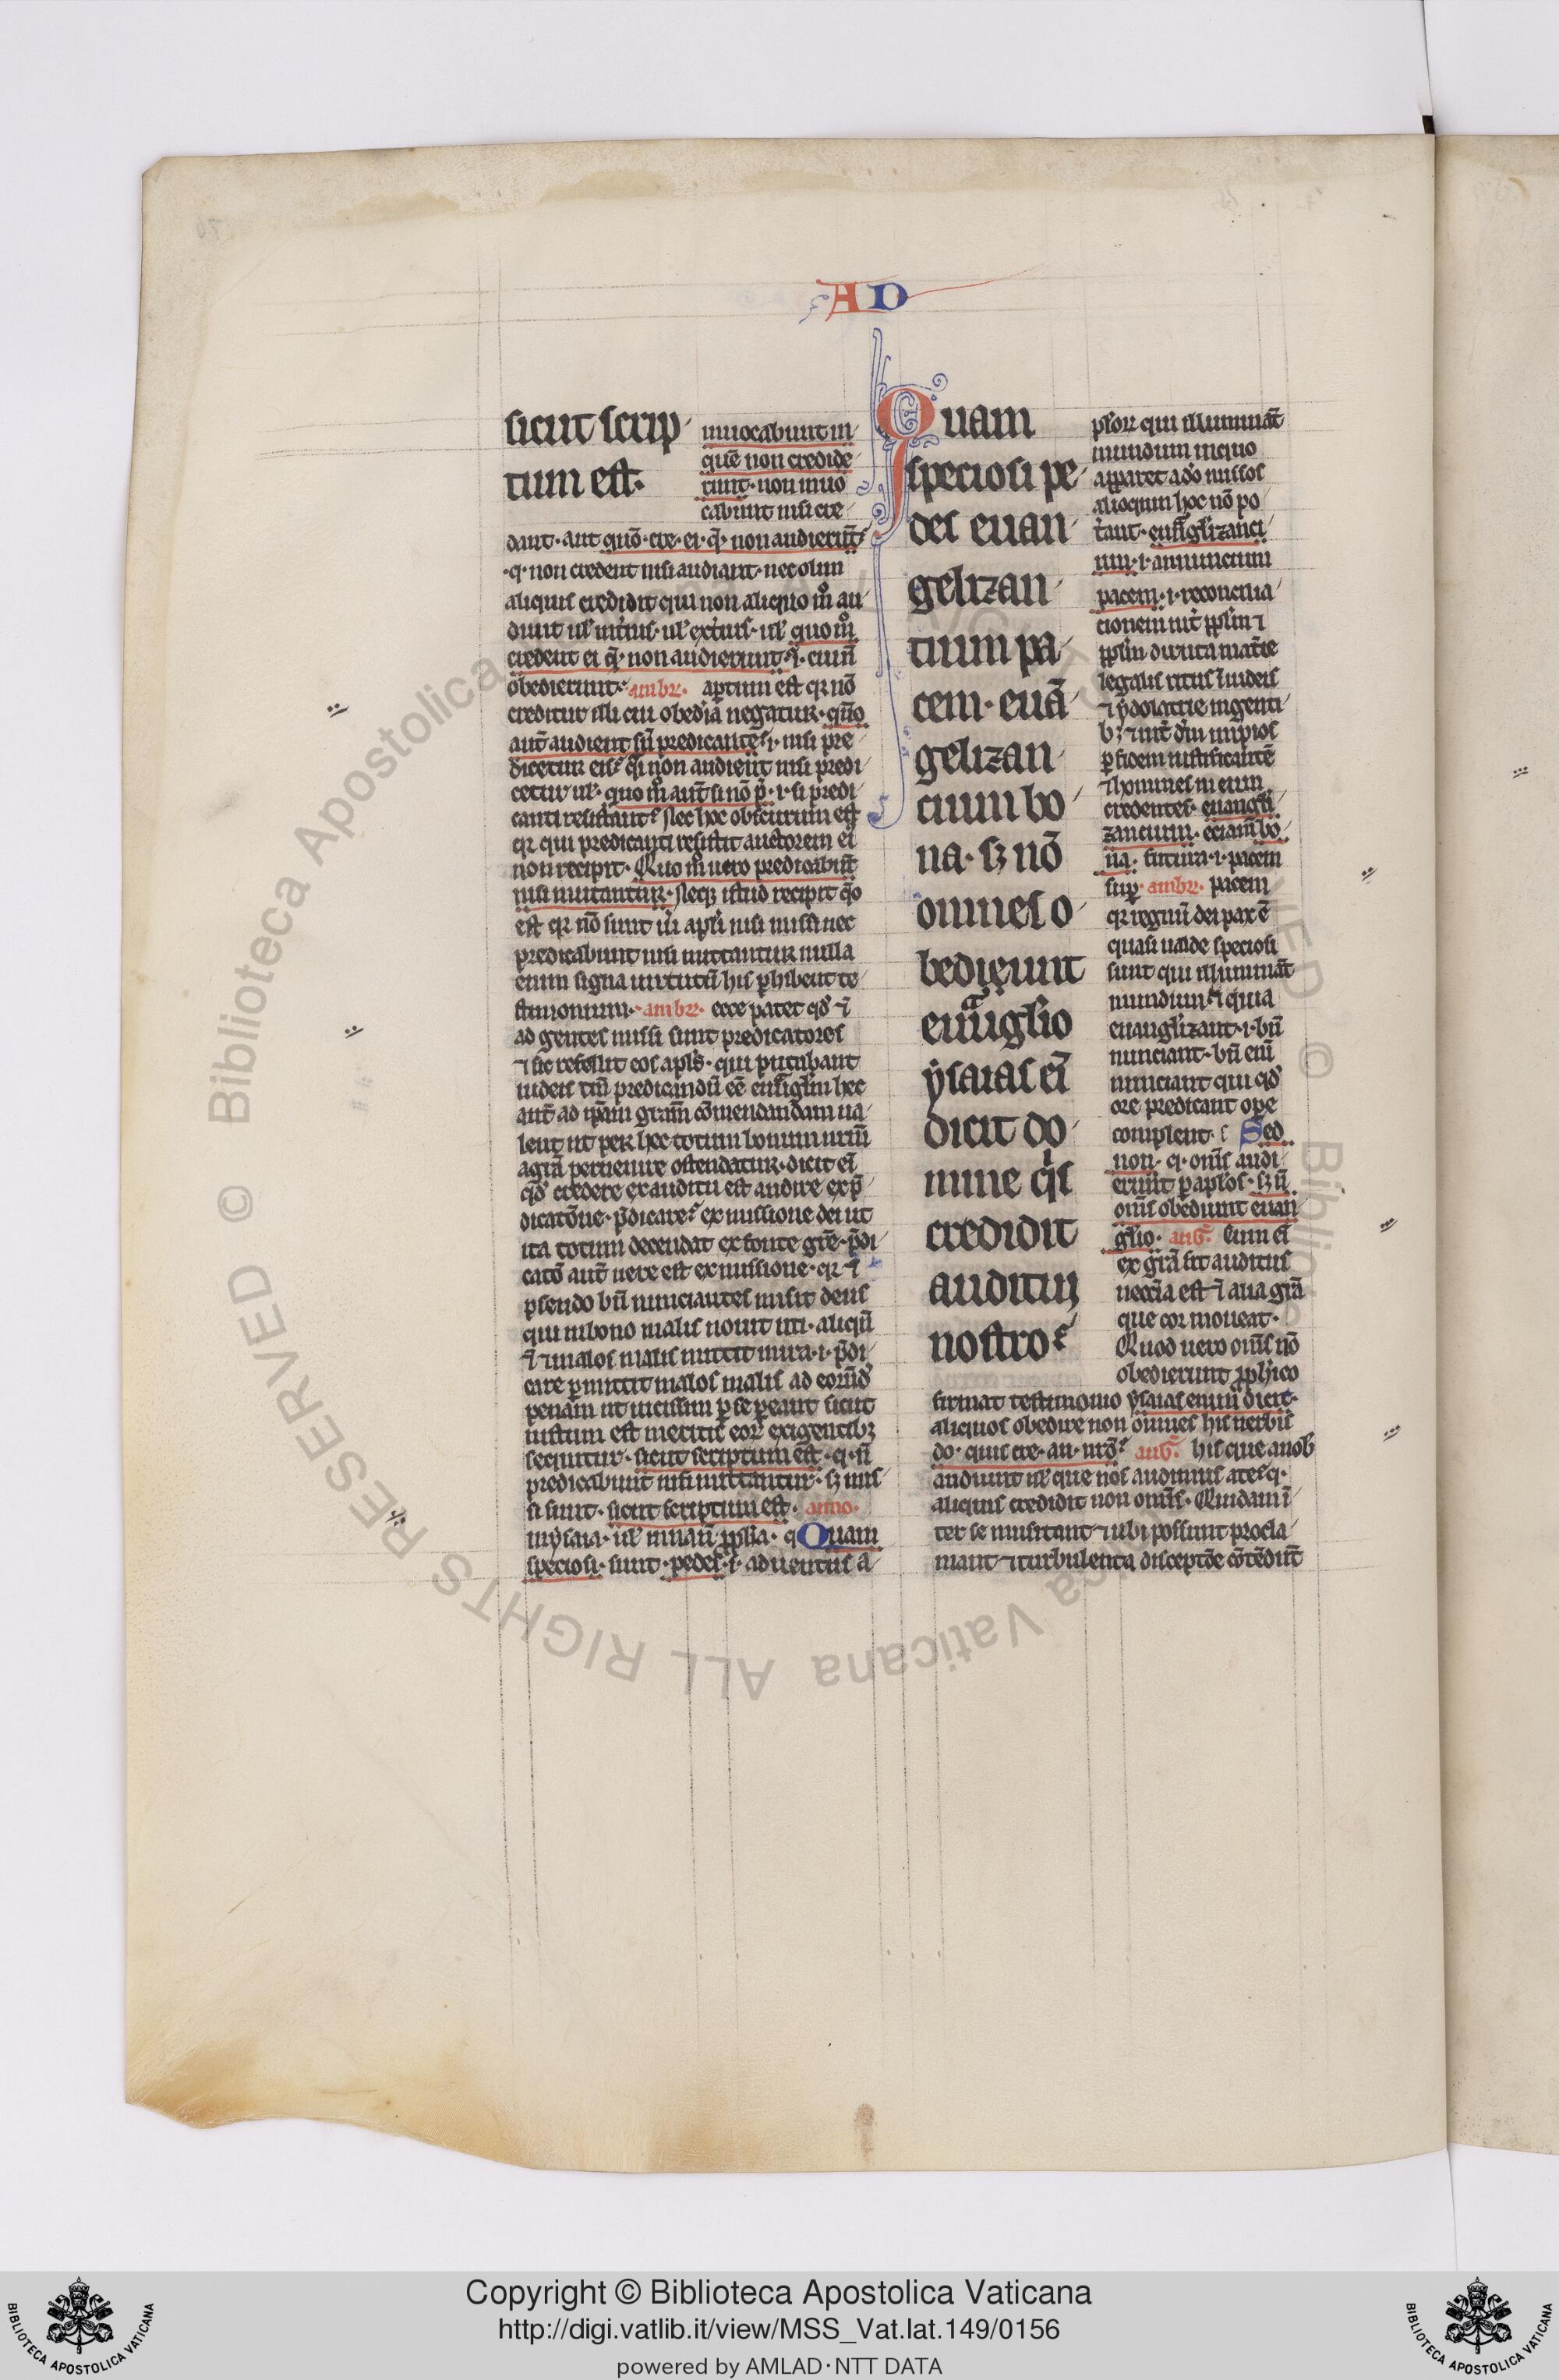 AD
sicut scrip
tum est.
inuocabunt in
quē non credide
runt. non inuo
cabunt nisi cre
dant. aut quō. cre. ei. q̄. non audierūt
.q. non credent nisi audiant. nec olim
aliquis credidit qui non aliquo m̊ au
diuit ul' int'ius. ul' ext'ius. ul' quo m̊
credent ei q̄. non audierunt .i. cui n̄
obedierunt. ambr. apertum est qr nō
creditur illi cui obedīa negatur. quō
aut̄ audient sn̄ predicante .i. nisi pre
dicetur eis. q̄i non audient nisi predi
cetur ul'. quo m̊ aut̄ si nō p̄. i. si predi
canti resistant. Nec hoc obscurum est
qr qui predicanti resistit auctorem ei
non recipit. Quo m̊ uero predicabūt
nisi mittantur. Neqꝫ istud recipit q̊o
est qr nō sunt ūi apl'i nisi missi nec
predicabunt nisi mittantur nulla
enim signa uirtutū his p̱hibent te
stimonium. ambr. ecce patet qd' ⁊
ad gentes missi sunt predicatores
⁊ sic refellit eos apl's. qui putabant
iudeis tm̄ predicandū eē euāgl'ium hec
aut̄ ad ip̄am grām cōmendandam ua
lent ut per hec totum bonum nrm̄
a grā peruenire ostendatur. dicit ei
qd' credere ex auditu est audire ex p̄
dicatōne. p̄dicare. ex missione dei ut
ita totum decendat ex fonte grē. p̄di
catō aut̄ uere est ex missione. qr ⁊
p̱sendo bn̄ nunciantes misit deus
qui in bono malis nouit uti. aliqn̄
⁊ malos malis mittit in ira. i. p̄di
care p̱mittit malos malis ad eorūd'
penam ut uicissim p̱ se p̱eant sicut
iustum est meritis eoꝝ exigentibꝫ
sequitur. sicut scriptum est. q. n̄
predicabunt nisi mittantur. sꝫ mis
si sunt. sicut scriptum est.
in ysaia. ul' in naū ꝓph'ia. q Quam
speciosi. sunt. pedes. i. aduentus a
Quam
speciosi pe
des euan
gelizan
tium pa
cem. euā
gelizan
cium bo
na. sꝫ nō
omnes o
bediunt
euāglio
ysaias ei
dicit do
mine q̇s
credidit
auditui
nostro
pl'oꝝ qui illumināt
mundum in quo
apparet a do missos
alioquin hoc nō po
t'ant. euāgl'izanci
um. i. annuncium
pacem. i. reconcilia
cionem int' ppl'm ⁊
ppl'm diruta mat'ie
legalis ritus ī iudeis
⁊ ydolatrie in genti
bꝫ ⁊ int' dm̄ impios
p̱ fidem iustificantē
⁊ homines in eum
credentes. euangl'i
zancium. eciam bo
na. futura. i. pacem
sup̱. ambr. pacem
qr regnū dei pax ē
quasi ualde speciosi
sunt qui illumināt
mundum ⁊ quia
euangl'izant. i. bn̄
nunciant. bn̄ eni
nunciant qui qd'
ore predicant ope
complent. Sed
non. q. om̄s audi
erunt p̱ ap'los. sꝫ n̄
om̄s obediunt euan
gl'io. aug. Cum ei
ex grā fit auditus
neccīa est ⁊ alia grā
que cor moueat.
Quod uero om̄s nō
obedierunt ꝓph'ico
firmat testimonio ysaias enim dicit.
aliquos obedire non omnes his uerbis
do. quis cre. au. nrō. aug. his que a nob
audiunt ul' que nos audimus a te. q.
aliquis credidit non om̄s. Quidam ī
ter se musitant ⁊ ubi possunt procla
mant ⁊ turbulenta disceptōe cōtēdūt
Biblioteca Apostolica Vaticana ALL RIGHTS RESERVED ©
Copyright © Biblioteca Apostolica Vaticana
http://digi.vatlib.it/view/MSS_Vat.lat.149/0156
powered by AMLAD·NTT DATA
BIBLIOTECA APOSTOLICA VATICANA
BIBLIOTECA APOSTOLICA VATICANA